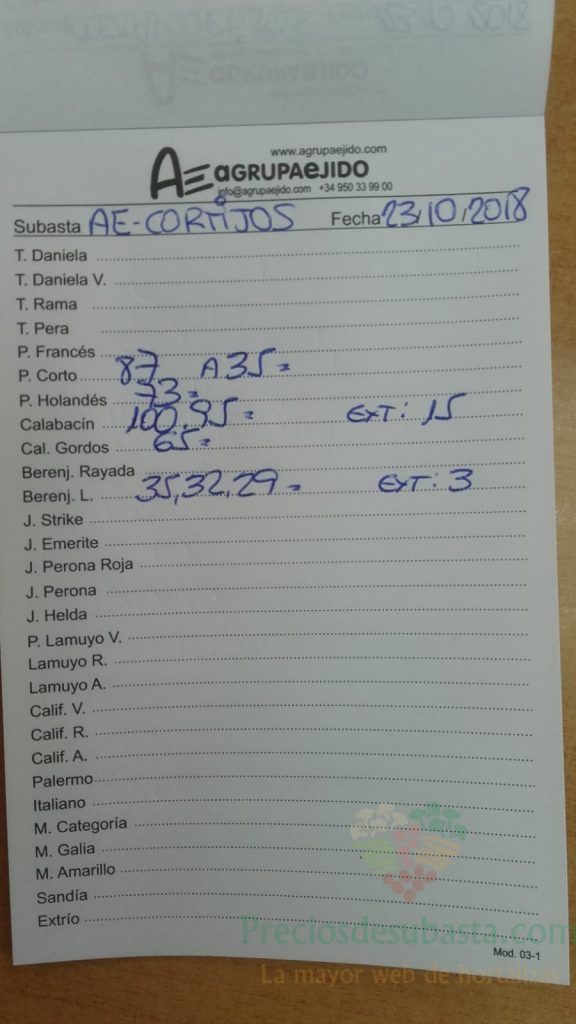 www.agrupaejido.com
AE AGRUPAEJIDO
info@agrupaejido.com +34 950 33 99 00
Subasta AE-CORTIJOS Fecha 23/10/2018
T. Daniela
T. Daniela V.
T. Rama
T. Pera
P. Francés
P. Corto 87 A 35=
P. Holandés 73=
Calabacín 100.95= EXT: 15
Cal. Gordos 65=
Berenj. Rayada
Berenj. L. 35,32,29= EXT: 3
J. Strike
J. Emerite
J. Perona Roja
J. Perona
J. Helda
P. Lamuyo V.
Lamuyo R.
Lamuyo A.
Calif. V.
Calif. R.
Calif. A.
Palermo
Italiano
M. Categoría
M. Galia
M. Amarillo
Sandía
Extrío
Preciosdesubasta.com
Mod. 03-1
La mayor web de hortalizas